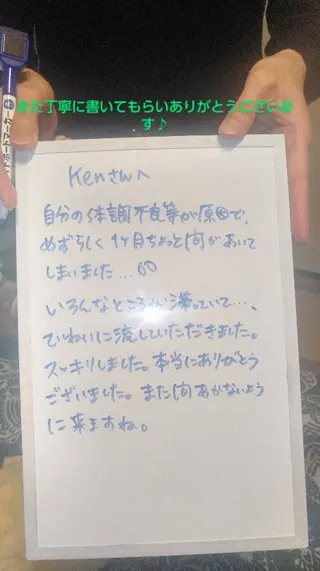 また丁寧に書いてもらいありがとうございま
す♪
Kenさんへ
自分の体調不良等が原因で、
めずらしく1ヶ月ちょっと間があいて
しまいました…
いろんなところが滞っていて…、
ていねいに流していただきました。
スッキリしました。本当にありがとう
ございました。また間あかないよう
に来ますね。